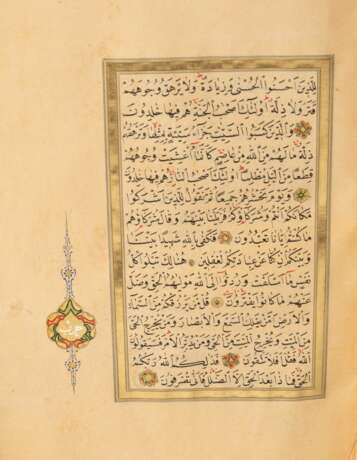 لِلَّذِينَ اَحْسَنُوا الْحُسْنٰى وَزِيَادَةٌ وَلَا يَرْهَقُ وُجُوهَهُمْ
قَتَرٌ وَلَا ذِلَّةٌ اُولٰئِكَ اَصْحٰبُ الْجَنَّةِ هُمْ فِيهَا خٰلِدُونَ
وَالَّذِينَ كَسَبُوا السَّيِّـٔاتِ جَزَاءُ سَيِّئَةٍ بِمِثْلِهَا وَتَرْهَقُهُمْ
ذِلَّةٌ مَا لَهُمْ مِنَ اللّٰهِ مِنْ عَاصِمٍ كَاَنَّمَا اُغْشِيَتْ وُجُوهُهُمْ
قِطَعًا مِنَ الَّيْلِ مُظْلِمًا اُولٰئِكَ اَصْحٰبُ النَّارِ هُمْ فِيهَا خٰلِدُونَ
وَيَوْمَ نَحْشُرُهُمْ جَمِيعًا ثُمَّ نَقُولُ لِلَّذِينَ اَشْرَكُوا
مَكَانَكُمْ اَنْتُمْ وَشُرَكَاؤُكُمْ فَزَيَّلْنَا بَيْنَهُمْ وَقَالَ شُرَكَاؤُهُمْ
مَا كُنْتُمْ اِيَّانَا تَعْبُدُونَ فَكَفٰى بِاللّٰهِ شَهِيدًا بَيْنَنَا
وَبَيْنَكُمْ اِنْ كُنَّا عَنْ عِبَادَتِكُمْ لَغٰفِلِينَ هُنَالِكَ تَبْلُوا كُلُّ
نَفْسٍ مَا اَسْلَفَتْ وَرُدُّوا اِلَى اللّٰهِ مَوْلٰيهُمُ الْحَقِّ وَضَلَّ
عَنْهُمْ مَا كَانُوا يَفْتَرُونَ قُلْ مَنْ يَرْزُقُكُمْ مِنَ السَّمَاءِ
وَالْاَرْضِ اَمَّنْ يَمْلِكُ السَّمْعَ وَالْاَبْصَارَ وَمَنْ يُخْرِجُ الْحَيَّ
مِنَ الْمَيِّتِ وَيُخْرِجُ الْمَيِّتَ مِنَ الْحَيِّ وَمَنْ يُدَبِّرُ الْاَمْرَ فَسَيَقُولُونَ
اللّٰهُ فَقُلْ اَفَلَا تَتَّقُونَ فَذٰلِكُمُ اللّٰهُ رَبُّكُمُ
الْحَقُّ فَمَاذَا بَعْدَ الْحَقِّ اِلَّا الضَّلٰلُ فَاَنّٰى تُصْرَفُونَ
حزب